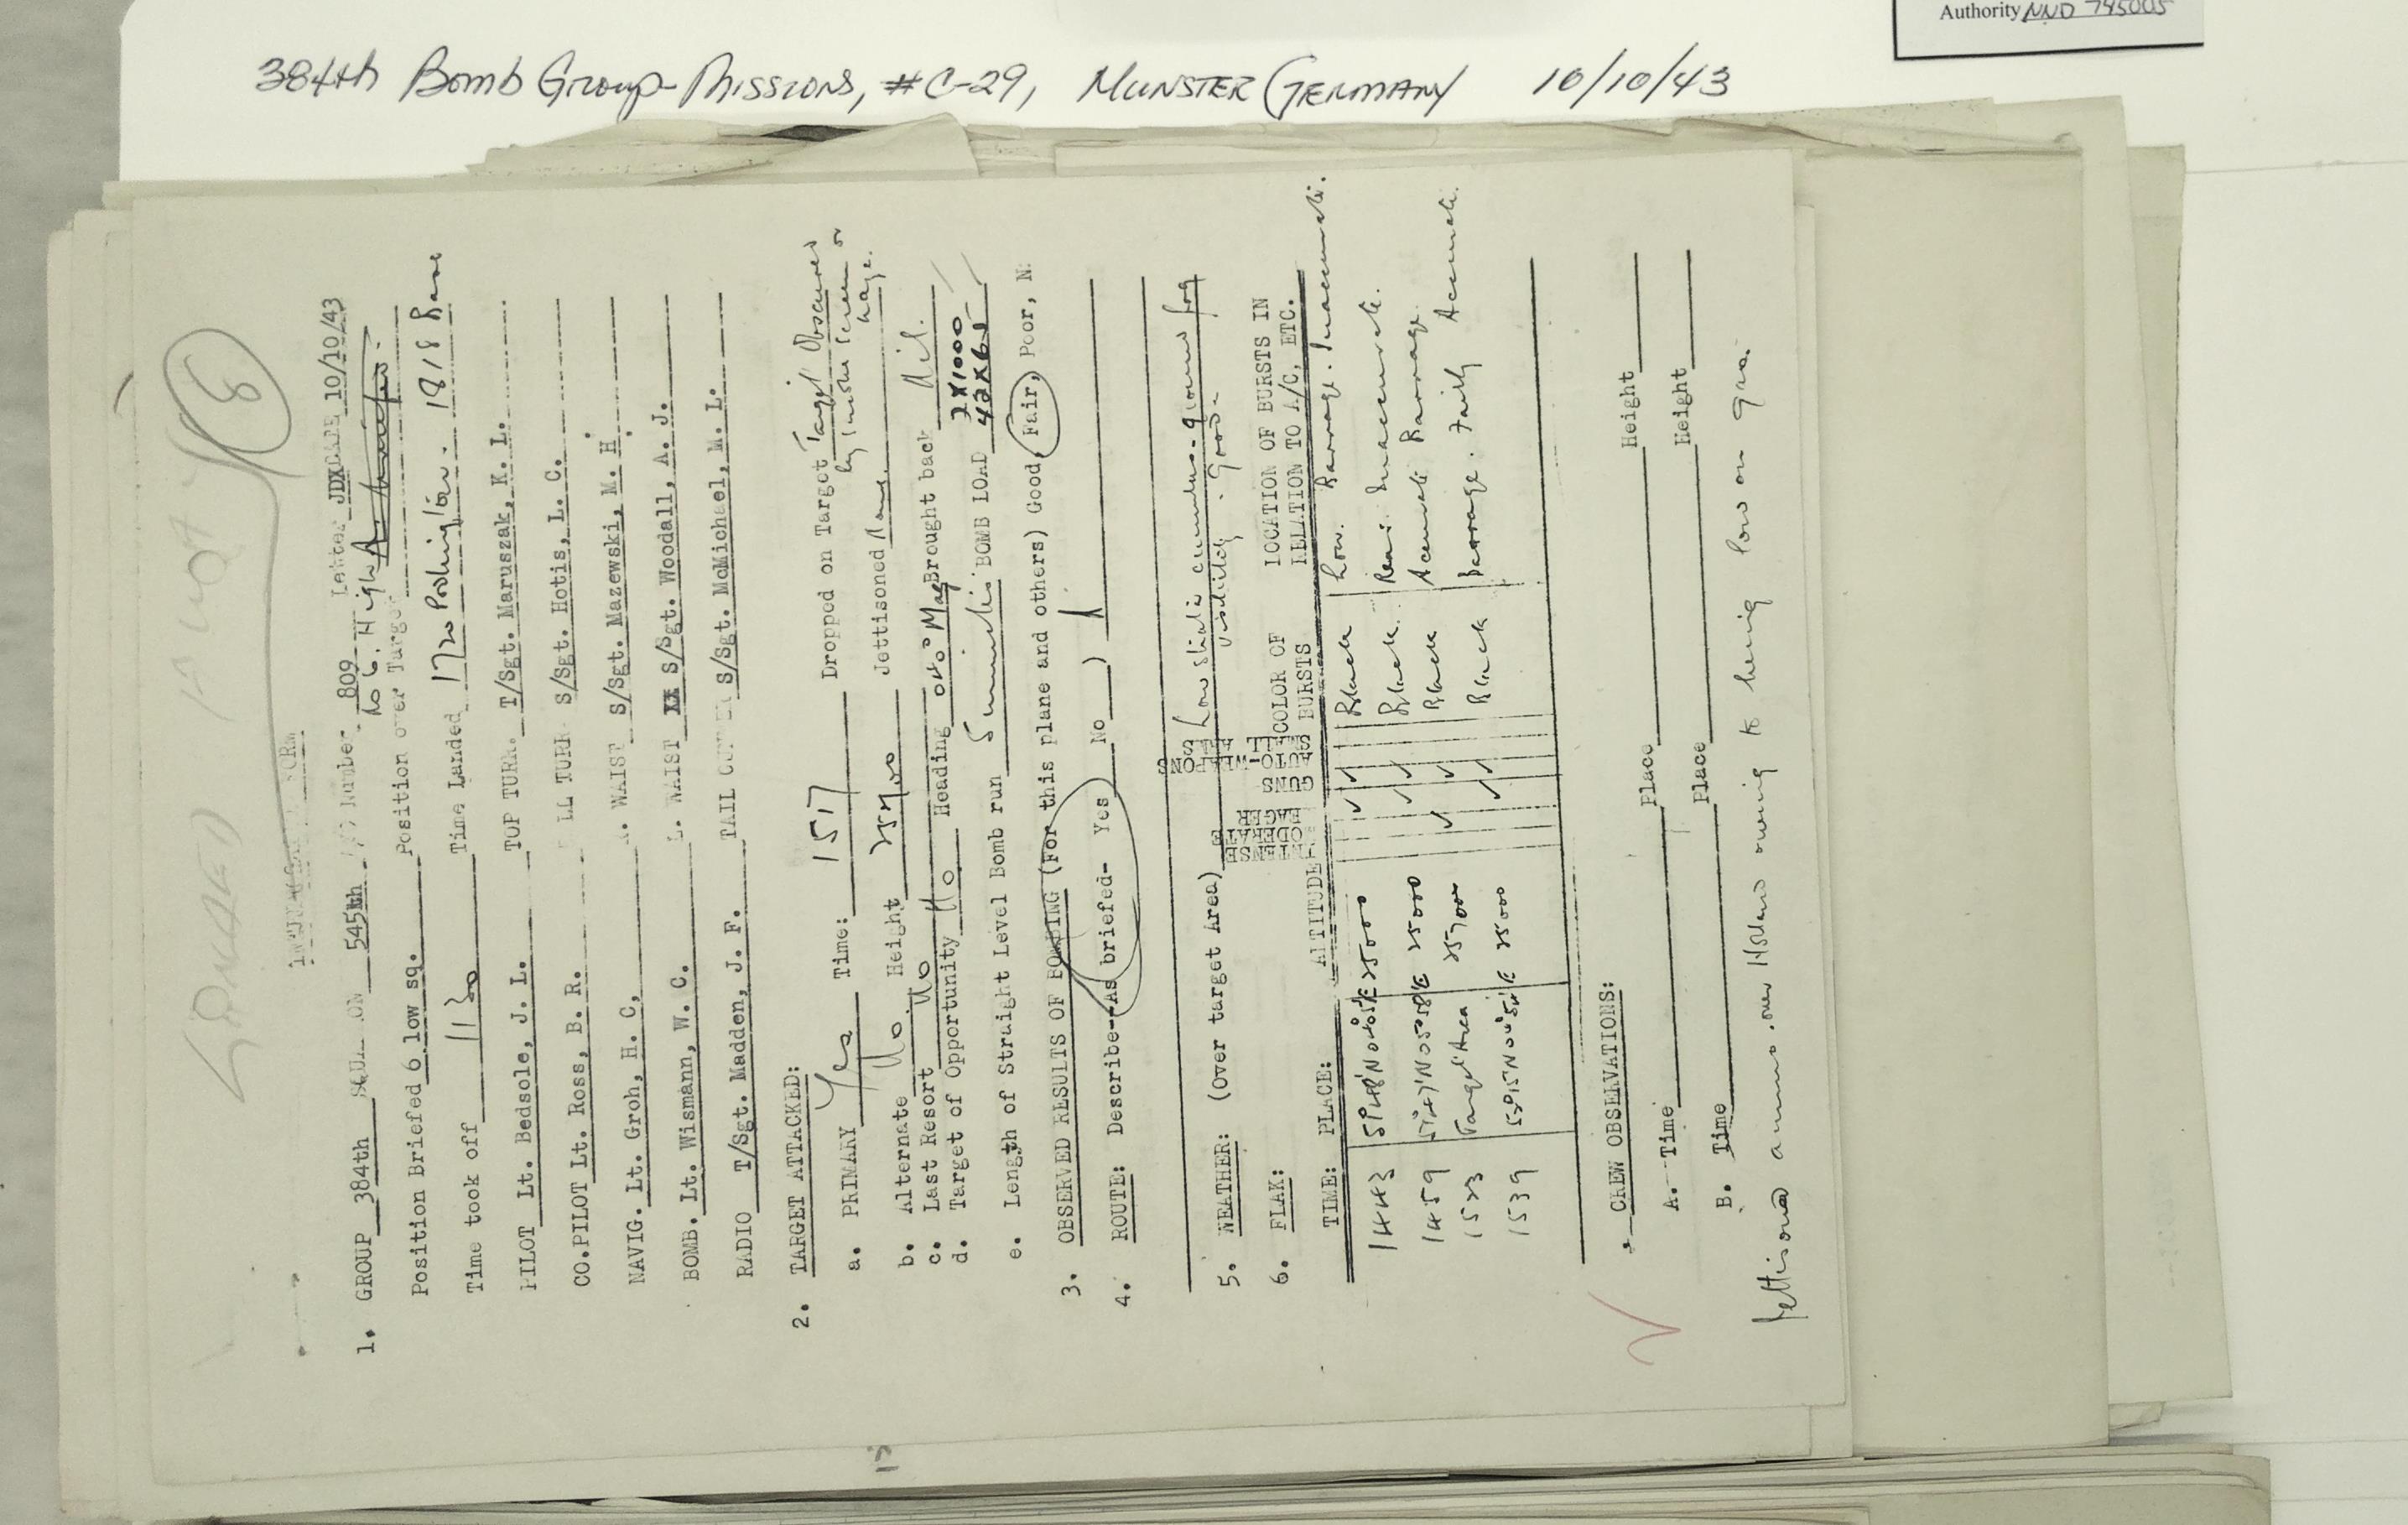 Authority NND 745005
384th Bomb Group-Missions, #C-29, Munster Germany 10/10/43
1. GROUP 384th 545th Number 809 Letter JDX DATE 10/10/43
Position Briefed 6 low sq. Position over Target No 6. High
Time took off 1130 Time Landed 1720 1818 Base
PILOT Lt. Bedsole, J. L. TOP TURR. T/Sgt. Maruszak, K. L.
CO.PILOT Lt. Ross, B. R. LL TURR S/Sgt. Hotis, L. C.
NAVIG. Lt. Groh, H. C, R. WAIST S/Sgt. Mazewski, M. H.
BOMB. Lt. Wismann, W. C. L. WAIST XX S/Sgt. Woodall, A. J.
RADIO T/Sgt. Madden, J. F. TAIL S/Sgt. McMichael, M. L.
2. TARGET ATTACKED:
a. PRIMARY Yes Time: 1517 Dropped on Target Target Obscured
by smoke screen or
haze.
b. Alternate No. Height 25700 Jettisoned None
c. Last Resort No
d. Target of Opportunity No Heading 040° Mag Brought back Nil.
e. Length of Straight Level Bomb run 5 minutes BOMB LOAD 2X1000
42X65
3. OBSERVED RESULTS OF BOMBING (For this plane and others) Good, Fair, Poor, N
4. ROUTE: Describe-As briefed- Yes No )
5. WEATHER: (Over target Area) Low strato cumulus. ground fog
visibility. Good.
6. FLAK:
TIME: PLACE: ALTITUDE INTENSE MODERATE MEAGER GUNS AUTO-WEAPONS COLOR OF BURSTS LOCATION OF BURSTS IN RELATION TO A/C, ETC.
1443 25000 Black Low. Barrage. Inaccurate.
1459 25000 Black. Rear. Inaccurate.
1523 Target Area 25700 Black Accurate Barrage.
1539 25000 Black Barrage. Fairly Accurate.
CREW OBSERVATIONS:
A. Time Place Height
B. Time Place Height
Jettisoned ammo. over Holland owing to being low on gas.